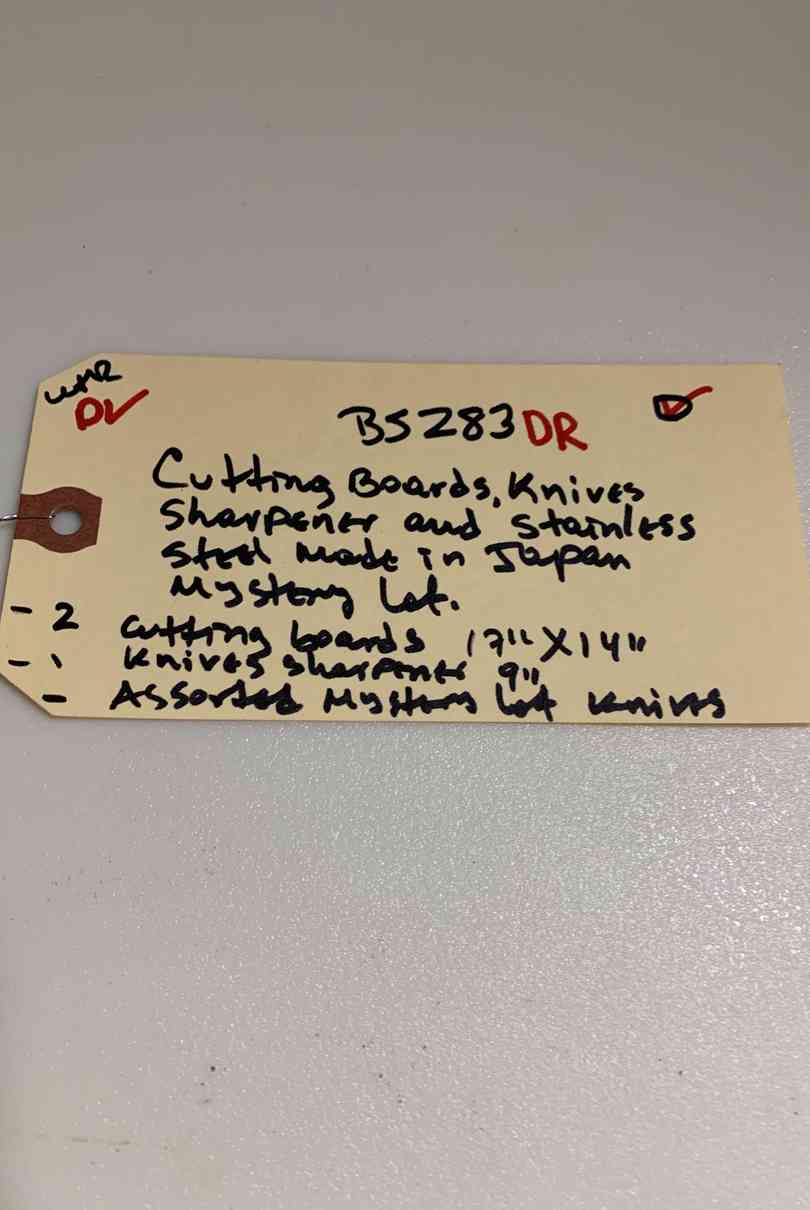 DV
BS283DR
Cutting Boards, Knives
Sharpener and Stainless
Steel Made in Japan
Mystery Lot.
- 2 Cutting boards 17" X 14"
- 1 Knives sharpener 9"
- Assorted Mystery Lot Knives